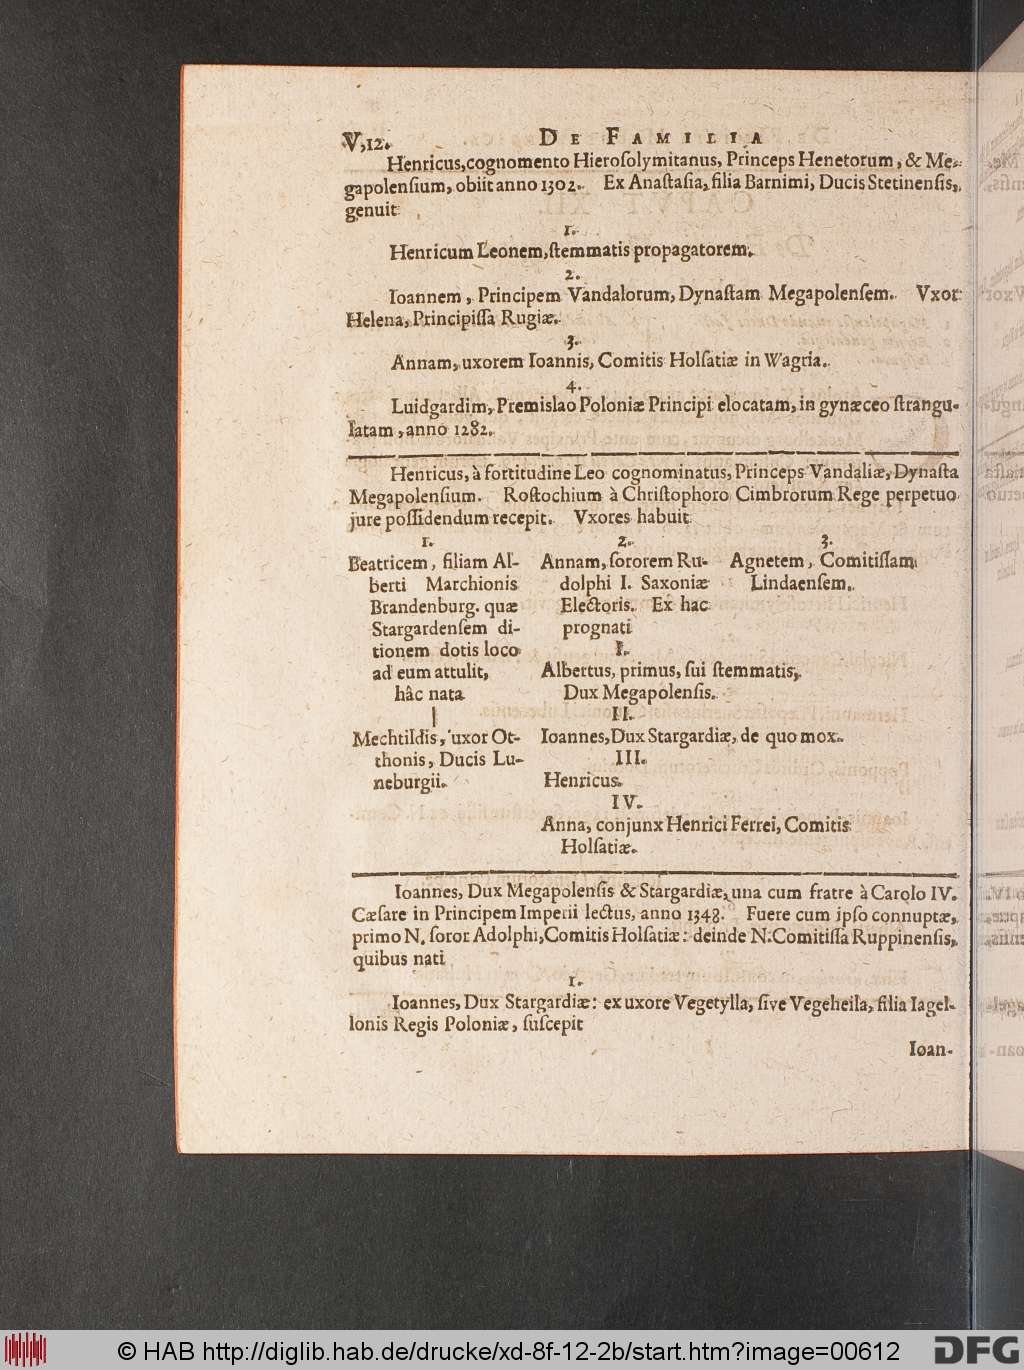 V,12. DE FAMILIA
Henricus, cognomento Hieroſolymitanus, Princeps Henetorum, & Me-
gapolenſium, obiit anno 1302. Ex Anaſtaſia, filia Barnimi, Ducis Stetinenſis,
genuit
1.
Henricum Leonem, ſtemmatis propagatorem.
2.
Ioannem, Principem Vandalorum, Dynaſtam Megapolenſem. Vxor
Helena, Principiſſa Rugiæ.
3.
Annam, uxorem Ioannis, Comitis Holſatiæ in Wagria.
4.
Luidgardim, Premislao Poloniæ Principi elocatam, in gynæceo ſtrangu-
latam, anno 1282.
Henricus, à fortitudine Leo cognominatus, Princeps Vandaliæ, Dynaſta
Megapolenſium. Roſtochium à Chriſtophoro Cimbrorum Rege perpetuo
jure poſſidendum recepit. Vxores habuit
1.
Beatricem, filiam Al-
berti Marchionis
Brandenburg. quæ
Stargardenſem di-
tionem dotis loco
ad eum attulit,
hâc nata
Mechtildis, uxor Ot-
thonis, Ducis Lu-
neburgii.
2.
Annam, ſororem Ru-
dolphi I. Saxoniæ
Electoris. Ex hac
prognati
I.
Albertus, primus, ſui ſtemmatis,
Dux Megapolenſis.
II.
Ioannes, Dux Stargardiæ, de quo mox.
III.
Henricus.
IV.
Anna, conjunx Henrici Ferrei, Comitis
Holſatiæ.
3.
Agnetem, Comitiſſam
Lindaenſem.
Ioannes, Dux Megapolenſis & Stargardiæ, una cum fratre à Carolo IV.
Cæſare in Principem Imperii lectus, anno 1348. Fuere cum ipſo connuptæ,
primo N. ſoror Adolphi, Comitis Holſatiæ: deinde N. Comitiſſa Ruppinenſis,
quibus nati
1.
Ioannes, Dux Stargardiæ: ex uxore Vegetylla, ſive Vegeheila, filia Iagel-
lonis Regis Poloniæ, ſuſcepit
Ioan-
© HAB http://diglib.hab.de/drucke/xd-8f-12-2b/start.htm?image=00612
DFG